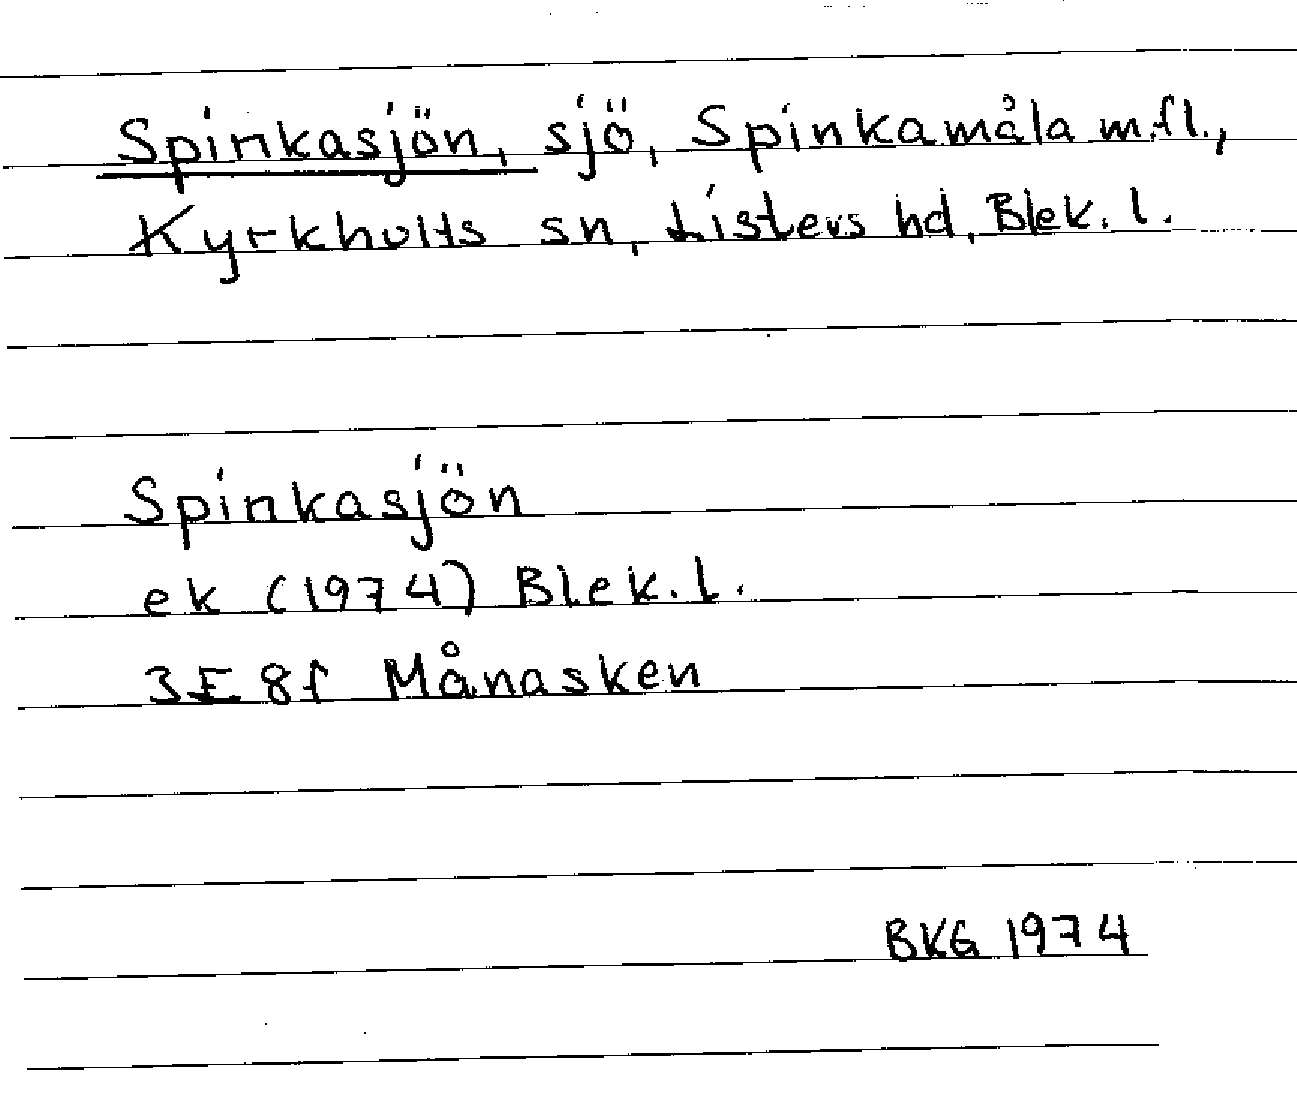 Spinkasjön, sjö, Spinkamåla m.fl.,
Kyrkhults sn, Listers hd, Blek. l.
Spinkasjön
ek (1974) Blek. l.
3E 8f Månasken
BKG 1974